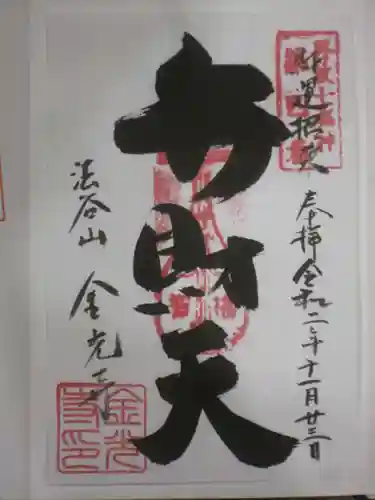 奉拝 令和二年十一月廿三日
開運招福
弁財天
法谷山 金光寺
金光寺印